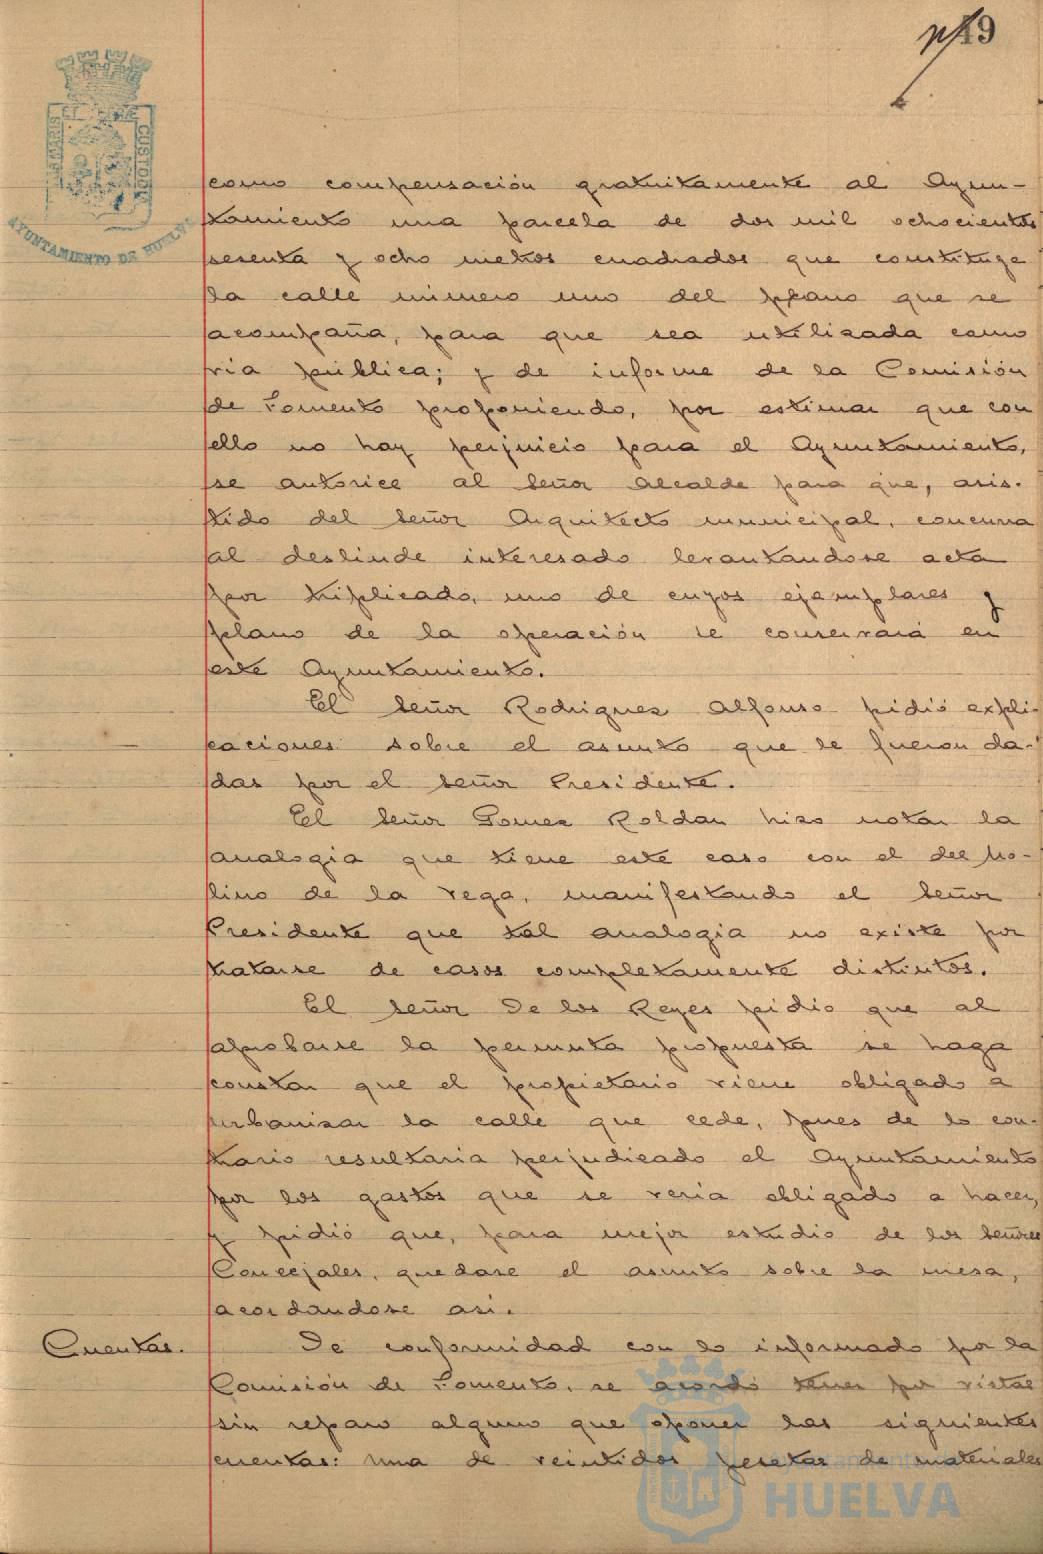 49
MARIS ET TERRÆ CUSTODIA
AYUNTAMIENTO DE HUELVA
como compensación gratuitamente al Ayun-
tamiento una parcela de dos mil ochocientos
sesenta y ocho metros cuadrados que constituye
la calle número uno del plano que se
acompaña, para que sea utilizada como
vía pública; y de informe de la Comisión
de Fomento proponiendo, por estimar que con
ello no hay perjuicio para el Ayuntamiento,
se autorice al Señor Alcalde para que, asis-
tido del Señor Arquitecto municipal, concurra
al deslinde interesado levantandose acta
por triplicado, uno de cuyos ejemplares y
plano de la operación se conservará en
este Ayuntamiento.
El Señor Rodriguez Alfonso pidió expli-
caciones sobre el asunto que le fueron da-
das por el Señor Presidente.
El Señor Gomez Roldan hizo notar la
analogia que tiene este caso con el del Mo-
lino de la Vega, manifestando el Señor
Presidente que tal analogia no existe por
tratarse de casos completamente distintos.
El Señor De los Reyes pidio que al
aprobarse la permuta propuesta se haga
constar que el propietario viene obligado a
urbanizar la calle que cede, pues de lo con-
trario resultaria perjudicado el Ayuntamiento
por los gastos que se veria obligado a hacer,
y pidió que, para mejor estudio de los Señores
Concejales, quedase el asunto sobre la mesa,
acordandose asi.
Cuentas. De conformidad con lo informado por la
Comisión de Fomento, se acordó tener por vistas
sin reparo alguno que oponer las siguientes
cuentas: una de veintidos pesetas de materiales
Ayuntamiento de
HUELVA